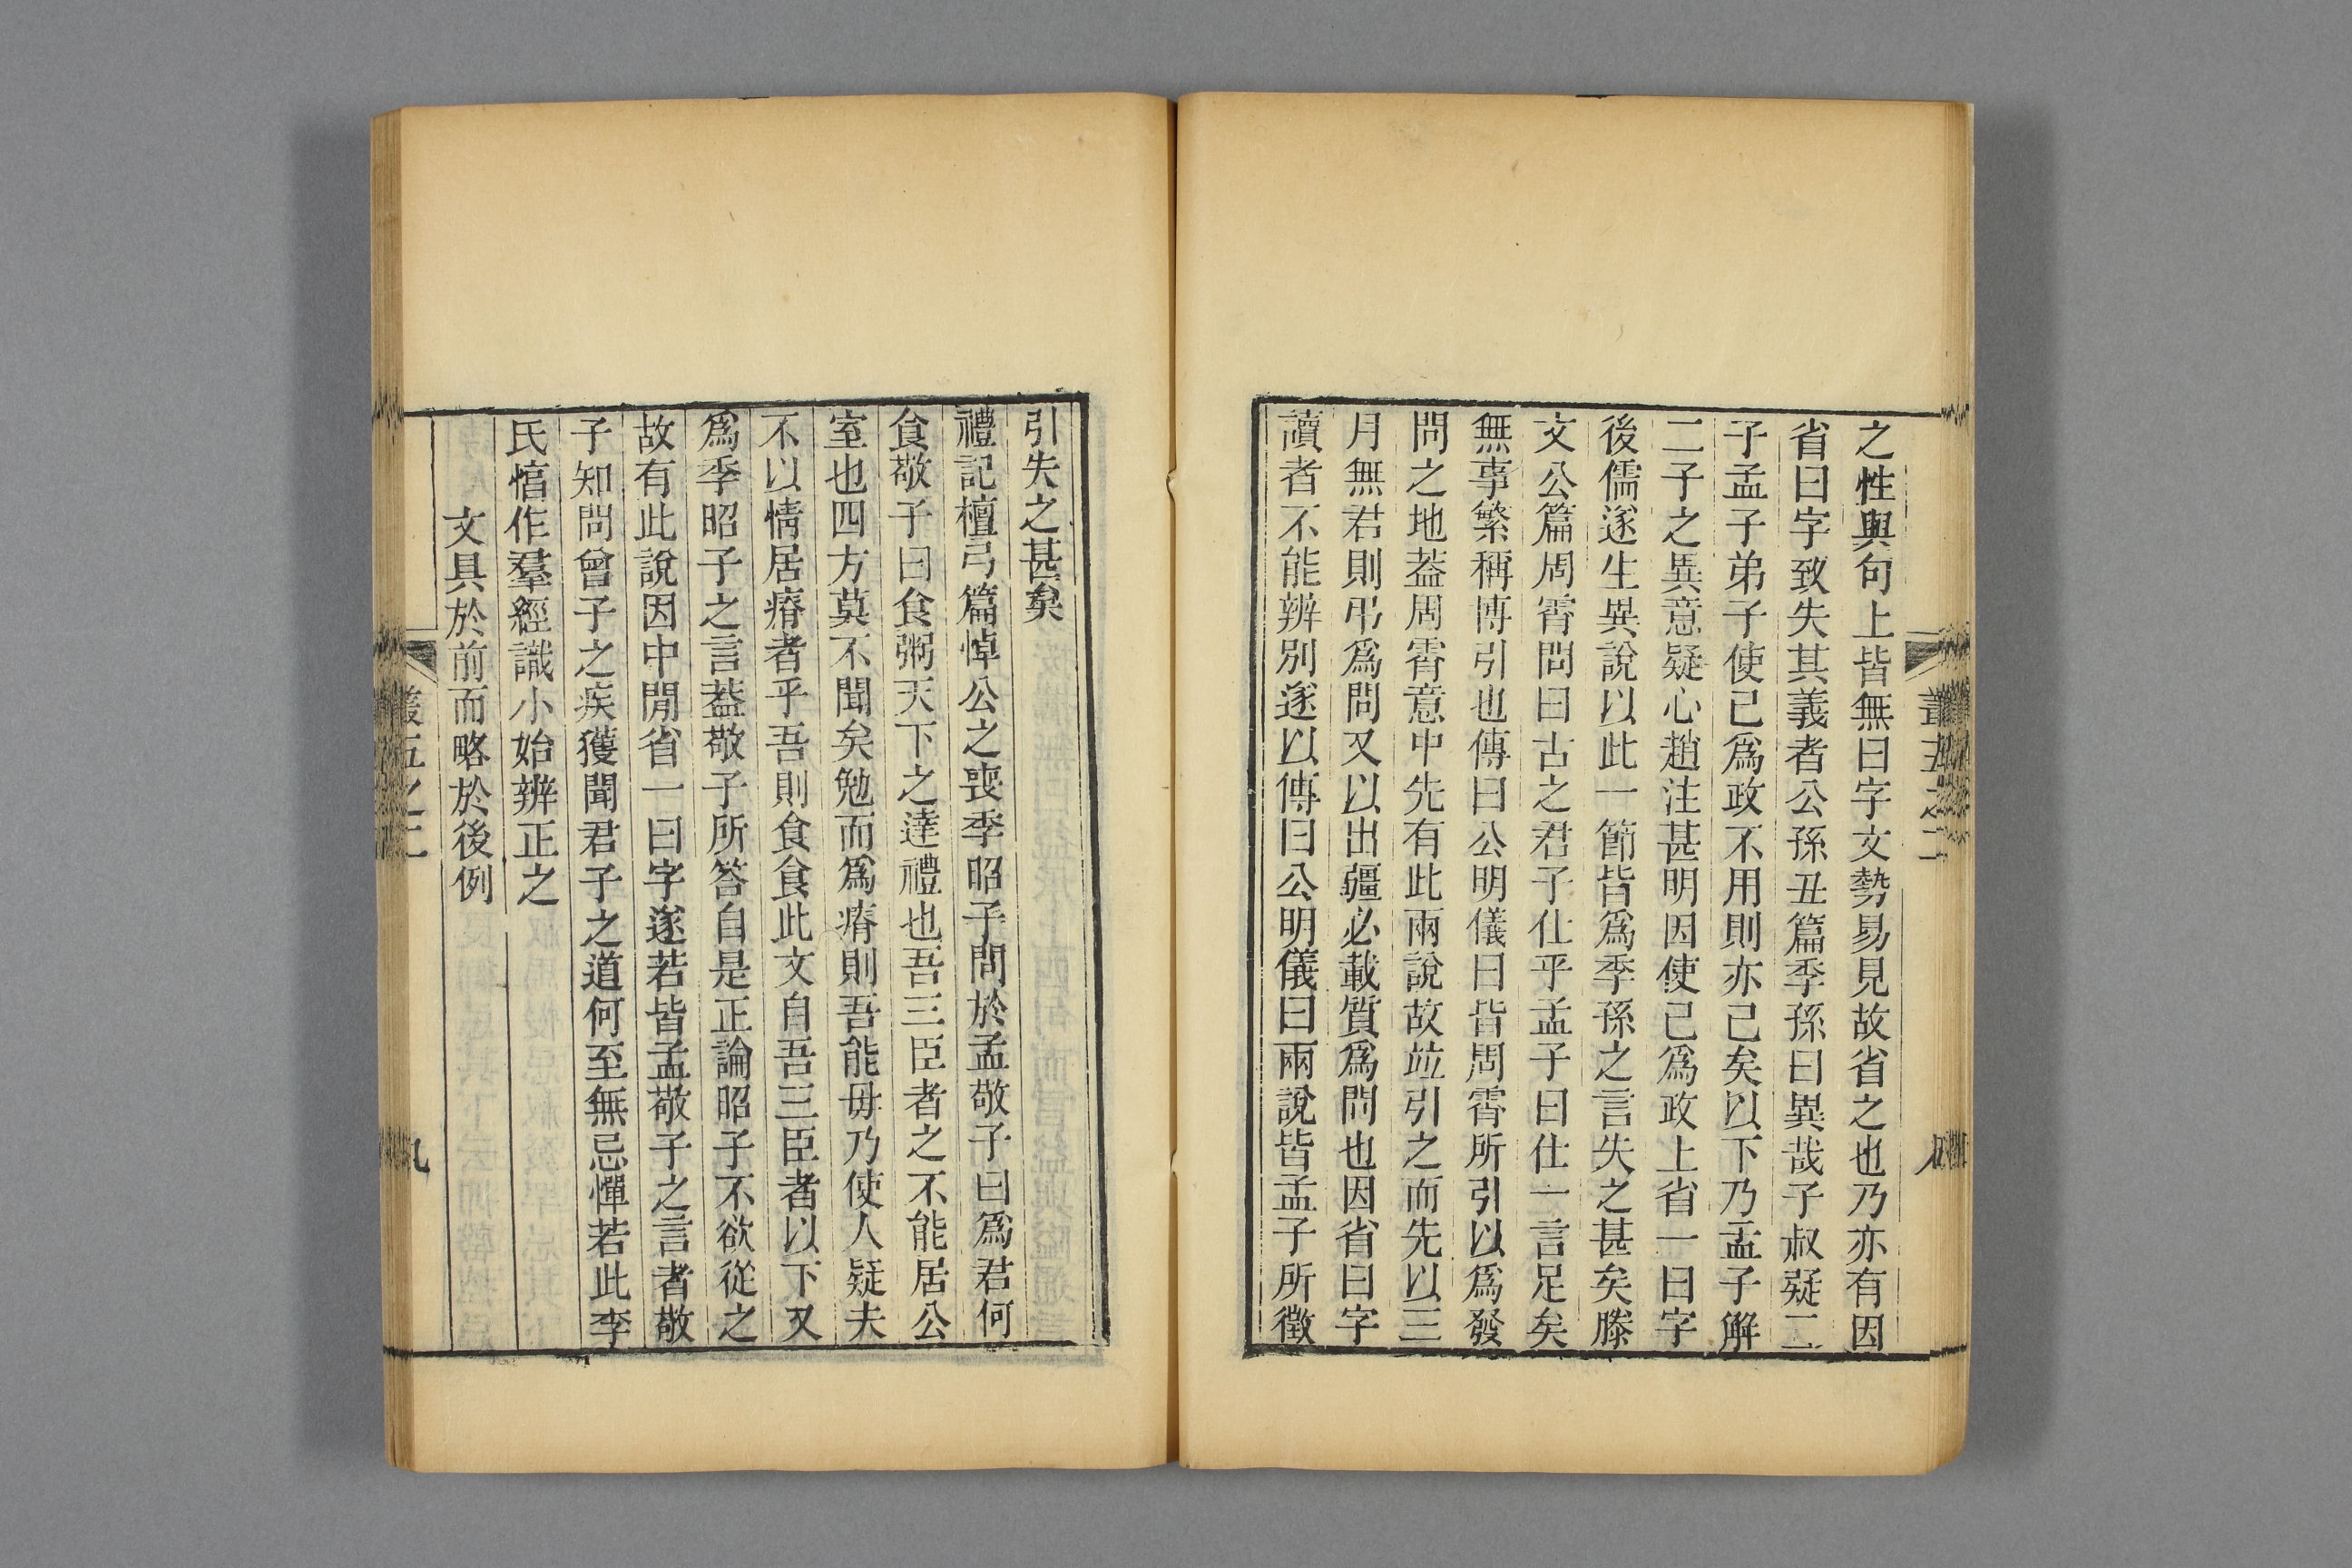 之性與句上皆無曰字文勢易見故省之也乃亦有因
省曰字致失其義者公孫丑篇季孫曰異哉子叔疑二
子孟子弟子使己爲政不用則亦已矣以下乃孟子解
二子之異意疑心趙注甚明因使己爲政上省一曰字
後儒遂生異說以此一節皆爲季孫之言失之甚矣滕
文公篇周霄問曰古之君子仕乎孟子曰仕一言足矣
無事繁稱博引也傳曰公明儀曰皆周霄所引以爲發
問之地葢周霄意中先有此兩說故竝引之而先以三
月無君則弔爲問又以出疆必載質爲問也因省曰字
讀者不能辨別遂以傳曰公明儀曰兩說皆孟子所徵
引失之甚矣
禮記檀弓篇悼公之喪季昭子問於孟敬子曰爲君何
食敬子曰食粥天下之達禮也吾三臣者之不能居公
室也四方莫不聞矣勉而爲瘠則吾能毋乃使人疑夫
不以情居瘠者乎吾則食食此文自吾三臣者以下又
爲季昭子之言葢敬子所答自是正論昭子不欲從之
故有此說因中閒省一曰字遂若皆孟敬子之言者敬
子知問曾子之疾獲聞君子之道何至無忌憚若此李
氏惇作羣經識小始辨正之
文具於前而略於後例
叢五之二
九